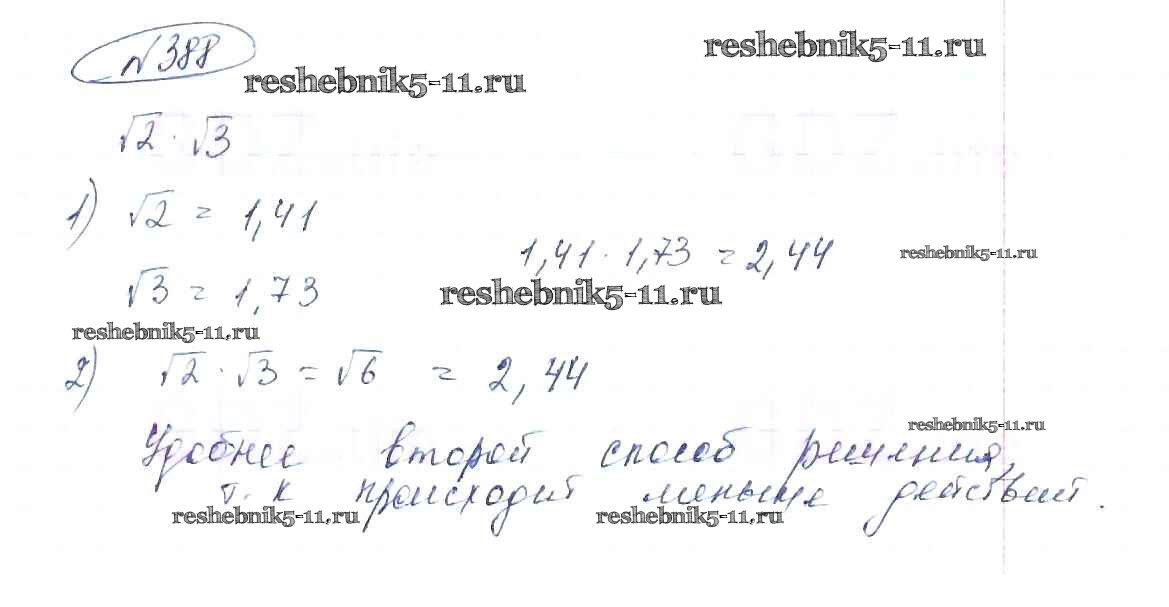 №388
reshebnik5-11.ru
reshebnik5-11.ru
√2 · √3
1) √2 = 1,41
1,41 · 1,73 = 2,44
reshebnik5-11.ru
√3 = 1,73
reshebnik5-11.ru
reshebnik5-11.ru
2) √2 · √3 = √6 = 2,44
reshebnik5-11.ru
Удобнее второй способ решения,
т.к происходит меньше действий.
reshebnik5-11.ru
reshebnik5-11.ru